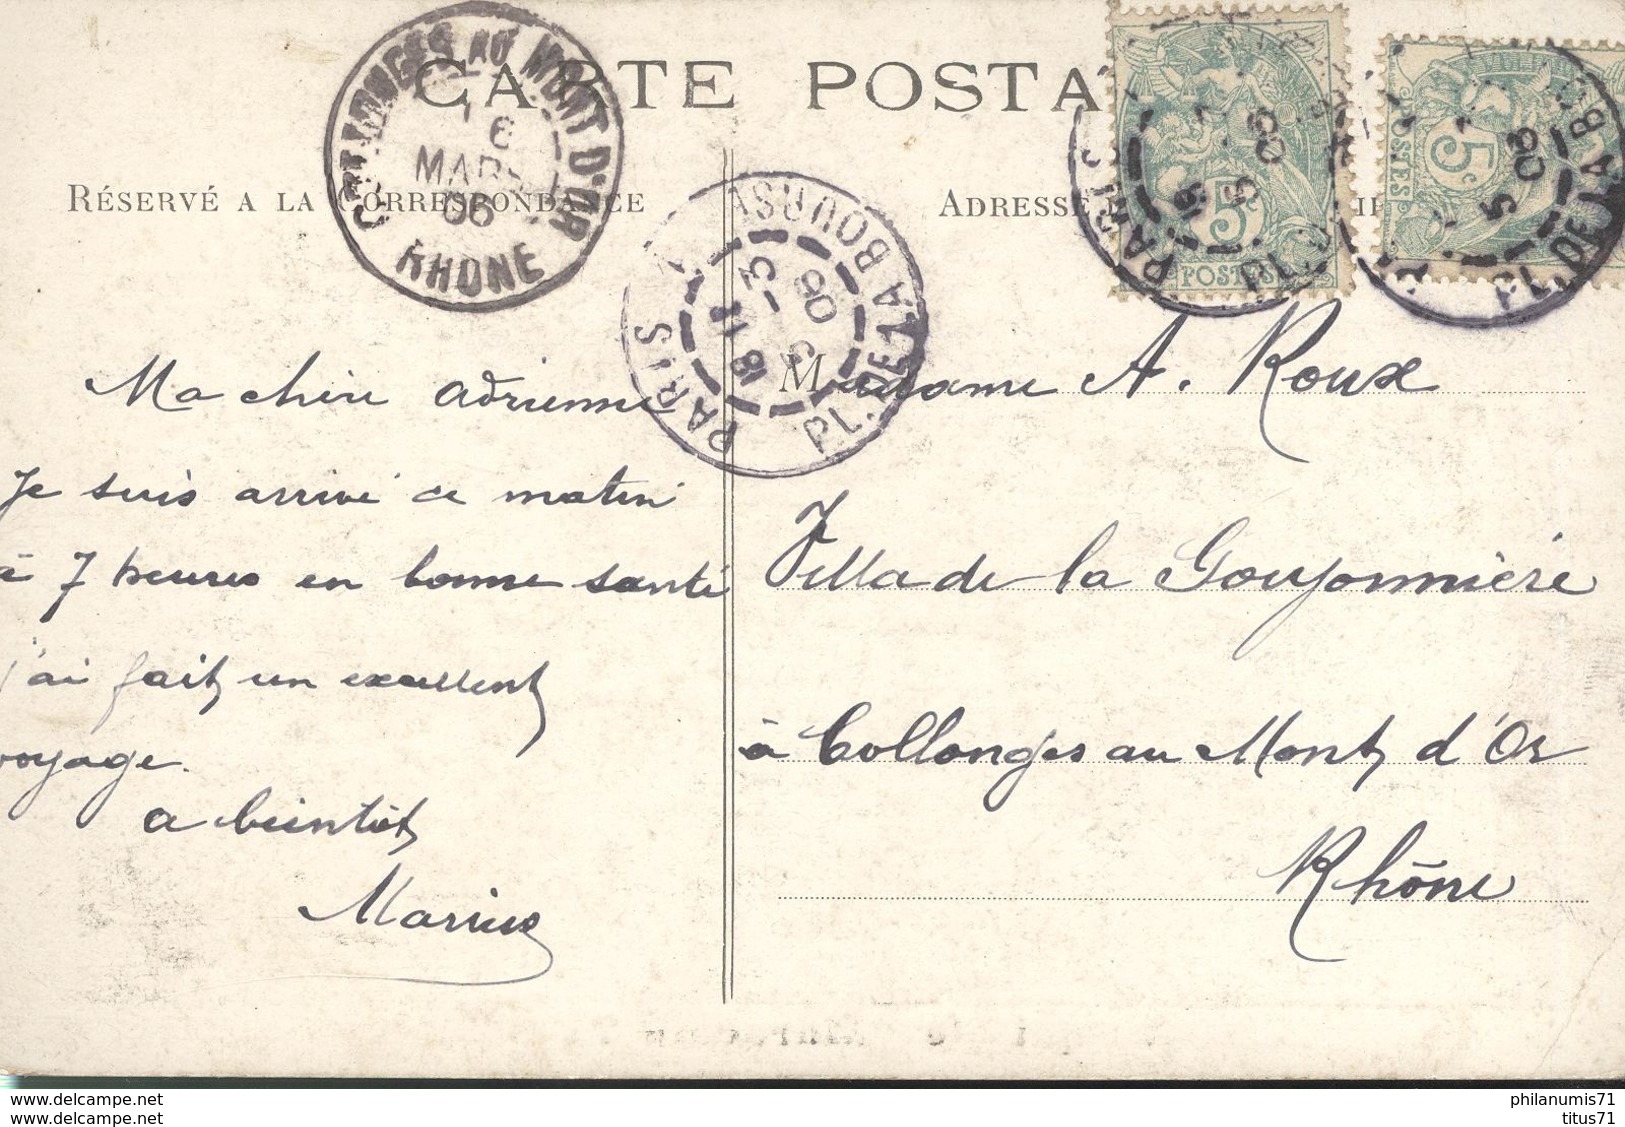 CARTE POSTA
RÉSERVÉ A LA CORRESPONDANCE
ADRESSE
COLLONGES AU MONT D'OR
6
MARS
06
RHONE
PARIS
PL. DE LA BOURSE
18 5 - 3
06
5c
POSTES
PARIS
PL.
18
5
06
5c
POSTES
PL. DE LA BO
5
06
Ma chère Adrienne
Je suis arrivé ce matin
à 7 heures en bonne santé
j'ai fait un excellent
voyage.
a bientôt
Marius
Madame A. Roux
Villa de la Goujonnière
à Collonges au Mont d'Or
Rhône
philanumis71
titus71
www.delcampe.net